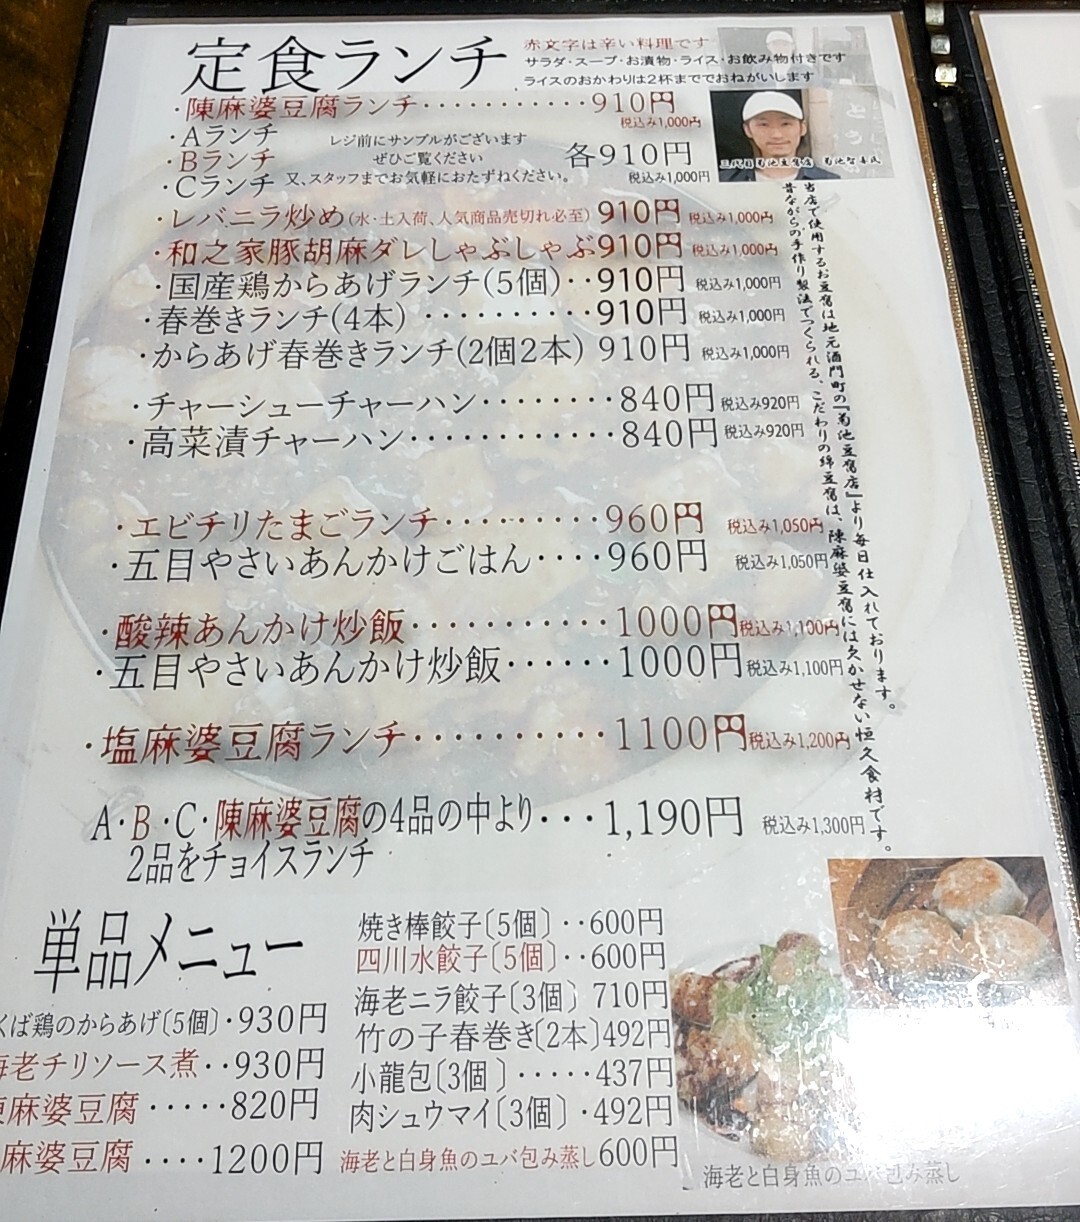 定食ランチ
赤文字は辛い料理です
サラダ・スープ・お漬物・ライス・お飲み物付きです
ライスのおかわりは2杯まででおねがいします
・陳麻婆豆腐ランチ・・・・・・・・・・・910円
税込み1,000円
・Aランチ
・Bランチ
・Cランチ
レジ前にサンプルがございます
ぜひご覧ください
又、スタッフまでお気軽におたずねください。
各910円
税込み1,000円
三代目菊池豆腐店 菊池智喜氏
・レバニラ炒め(水・土入荷、人気商品売切れ必至) 910円 税込み1,000円
・和之家豚胡麻ダレしゃぶしゃぶ910円 税込み1,000円
・国産鶏からあげランチ(5個)・・910円 税込み1,000円
・春巻きランチ(4本) ・・・・・・・・・910円 税込み1,000円
・からあげ春巻きランチ(2個2本) 910円 税込み1,000円
・チャーシューチャーハン・・・・・・・・840円 税込み920円
・高菜漬チャーハン・・・・・・・・・・・・840円 税込み920円
・エビチリたまごランチ・・・・・・・・・960円 税込み1,050円
・五目やさいあんかけごはん・・・・960円 税込み1,050円
・酸辣あんかけ炒飯・・・・・・・・・・・1000円 税込み1,100円
・五目やさいあんかけ炒飯・・・・・・1000円 税込み1,100円
・塩麻婆豆腐ランチ・・・・・・・・・・1100円 税込み1,200円
A・B・C・陳麻婆豆腐の4品の中より・・・1,190円 税込み1,300円
2品をチョイスランチ
当店で使用するお豆腐は地元酒門町の『菊池豆腐店』より毎日仕入れております。
昔ながらの手作り製法でつくられる、こだわりの綿豆腐は、陳麻婆豆腐には欠かせない恒久食材です。
単品メニュー
くば鶏のからあげ〔5個〕・930円
老チリソース煮・・930円
麻婆豆腐・・・・・820円
麻婆豆腐・・・・1200円
焼き棒餃子〔5個〕・・600円
四川水餃子〔5個〕・・600円
海老ニラ餃子〔3個〕710円
竹の子春巻き〔2本〕492円
小龍包〔3個 〕・・・・・437円
肉シュウマイ〔3個〕・492円
海老と白身魚のユバ包み蒸し600円
海老と白身魚のユバ包み蒸し